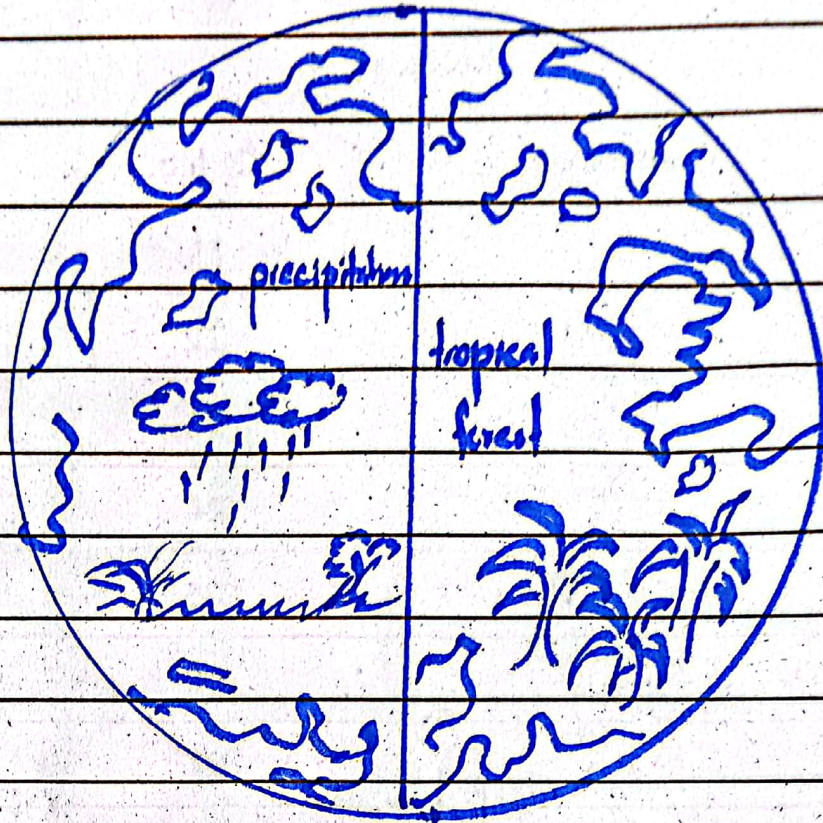 precipitation
tropical
forest